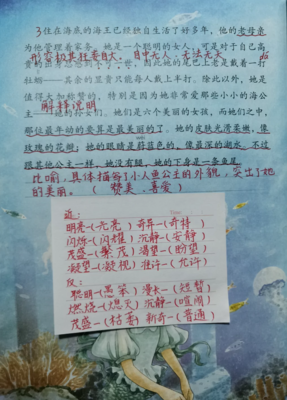 3住在海底的海王已经独自生活了好多年,他的老母亲
为他管理着家务。她是一个聪明的女人,可是对于自己高
形容极其狂妄自大,目中无人,无法无天。
牡蛎——其余的显贵只能每人戴上半打。除此以外,她是
值得大加称赞的,特别是因为她非常爱那些小小的海公
解释说明
主——她的孙女们。她们是六个美丽的女孩,而她们之中,
那位最年幼的要算是最美丽的了。她的皮肤光滑柔嫩,像
玫瑰的花瓣;她的眼睛是蔚蓝色的,像最深的湖水。不过
跟其他公主一样,她没有腿,她的下身是一条鱼尾
比喻,具体描写了小人鱼公主的外貌,突出了她
的美丽。(赞美、喜爱)
近:
明亮-(光亮) 奇异-(奇特)
闪烁-(闪耀) 沉静-(安静)
茂盛-(繁茂) 渴望-(盼望)
凝望-(凝视) 准许-(允许)
反:
聪明-(愚笨) 漫长-(短暂)
燃烧-(熄灭) 沉静-(喧闹)
茂盛-(枯萎) 新奇-(普通)